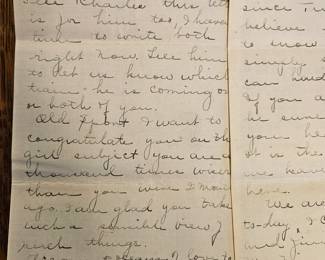 Tell Charlie this let
is for him too, I haven
time to write both
right now. Tell him
to let us know which
train he is coming on
or both of you.
Old Sport I want to
congratulate you on the
girl subject you are a
thousand times wiser
than you were I
ago. I am glad you take
such a sensible view of
such things.
I love to
since
believe
to know
simply
can
If you a
be sure
your he
it is the
we have
here.
We are
to-day, I C
and Jim